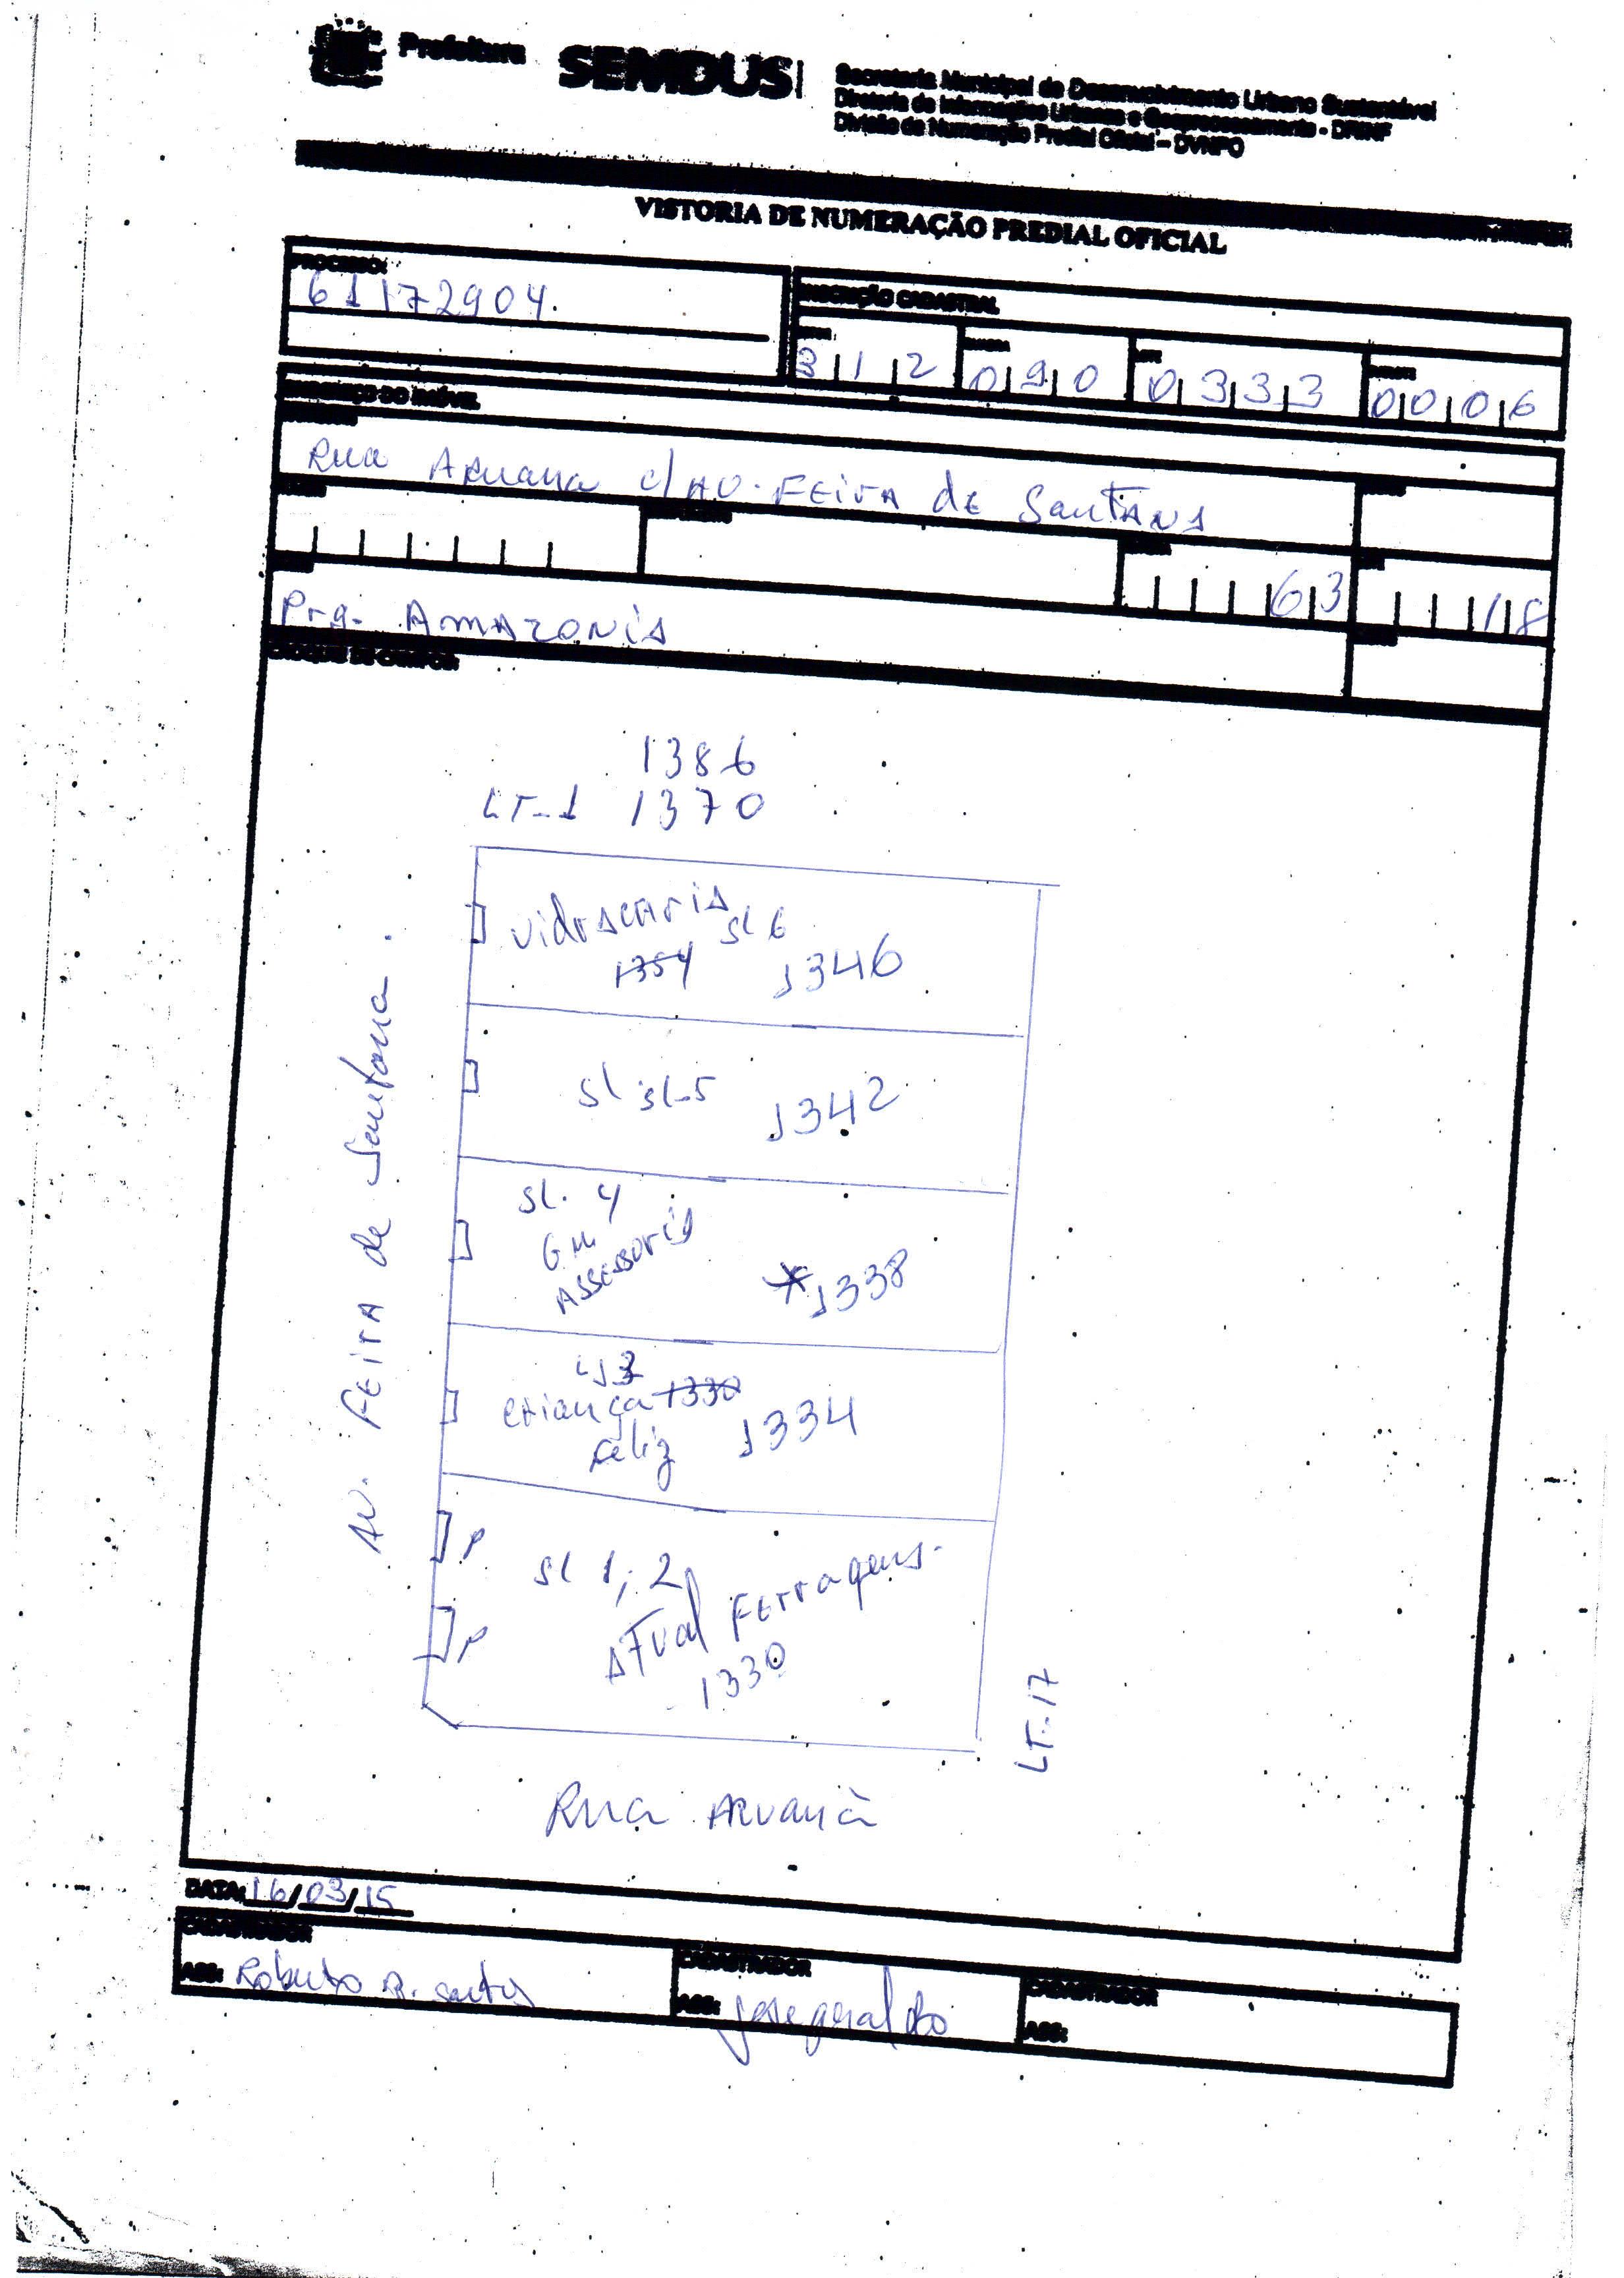 Prefeitura
SEMDUS
Secretaria Municipal de Desenvolvimento Urbano Sustentável
Diretoria de Informações Urbanas e Geoprocessamento - DRINF
Divisão de Numeração Predial Oficial - DVNPO
VISTORIA DE NUMERAÇÃO PREDIAL OFICIAL
PROCESSO:
61172904.
INSCRIÇÃO CADASTRAL
312 090 0333 0006
ENDEREÇO DO IMÓVEL
Rua Aruana c/ AV. FEIRA de SANTANA
63 18
Prq. AMAZONIA
CROQUIS DE CAMPO:
1386
LT-1 1370
vidracaria sl 6
1354 1346
sl sl-5 1342
sl. 4
GM
Assessoria
*1338
LJ 3
criança 1330
feliz 1334
P sl 1, 2
P Atual Ferragens.
1330
AV. FEIRA de Santana.
LT-17
Rua Aruanã
DATA: 16/03/15
CADASTRADOR
ASS: Roberto R. Santos
CADASTRADOR
ASS: Jose geraldo
CADASTRADOR
ASS: